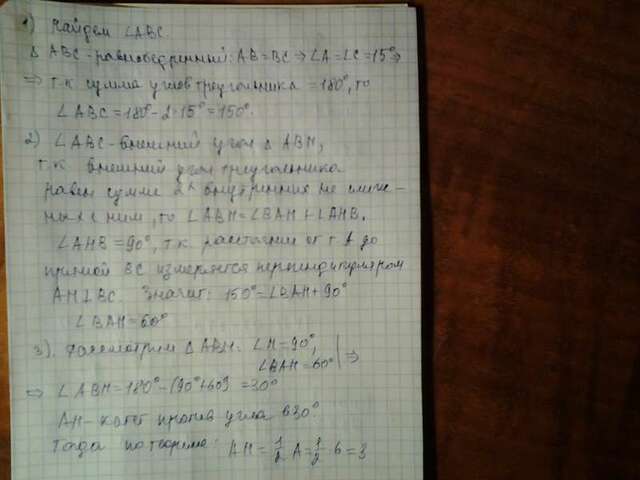 1) Найдем ∠ABC.
Δ ABC - равнобедренный: AB = BC ⇒ ∠A = ∠C = 15° ⇒
⇒ т.к сумма углов треугольника = 180°, то
∠ABC = 180° - 2·15° = 150°.
2) ∠ABC - внешний угол Δ ABH,
т.к внешний угол треугольника
равен сумме 2х внутренних не смеж-
ных с ним, то ∠ABH = ∠BAH + ∠AHB.
∠AHB = 90°, т.к. расстояние от т. A до
прямой BC измеряется перпендикуляром
AH ⊥ BC. Значит: 150° = ∠BAH + 90°
∠BAH = 60°
3). Рассмотрим Δ ABH. ∠H = 90°,
∠BAH = 60° | ⇒
⇒ ∠ABH = 180° - (90° + 60°) = 30°
AH - катет против угла в 30°.
Тогда по теореме: AH = 1/2 A = 1/2 · 6 = 3